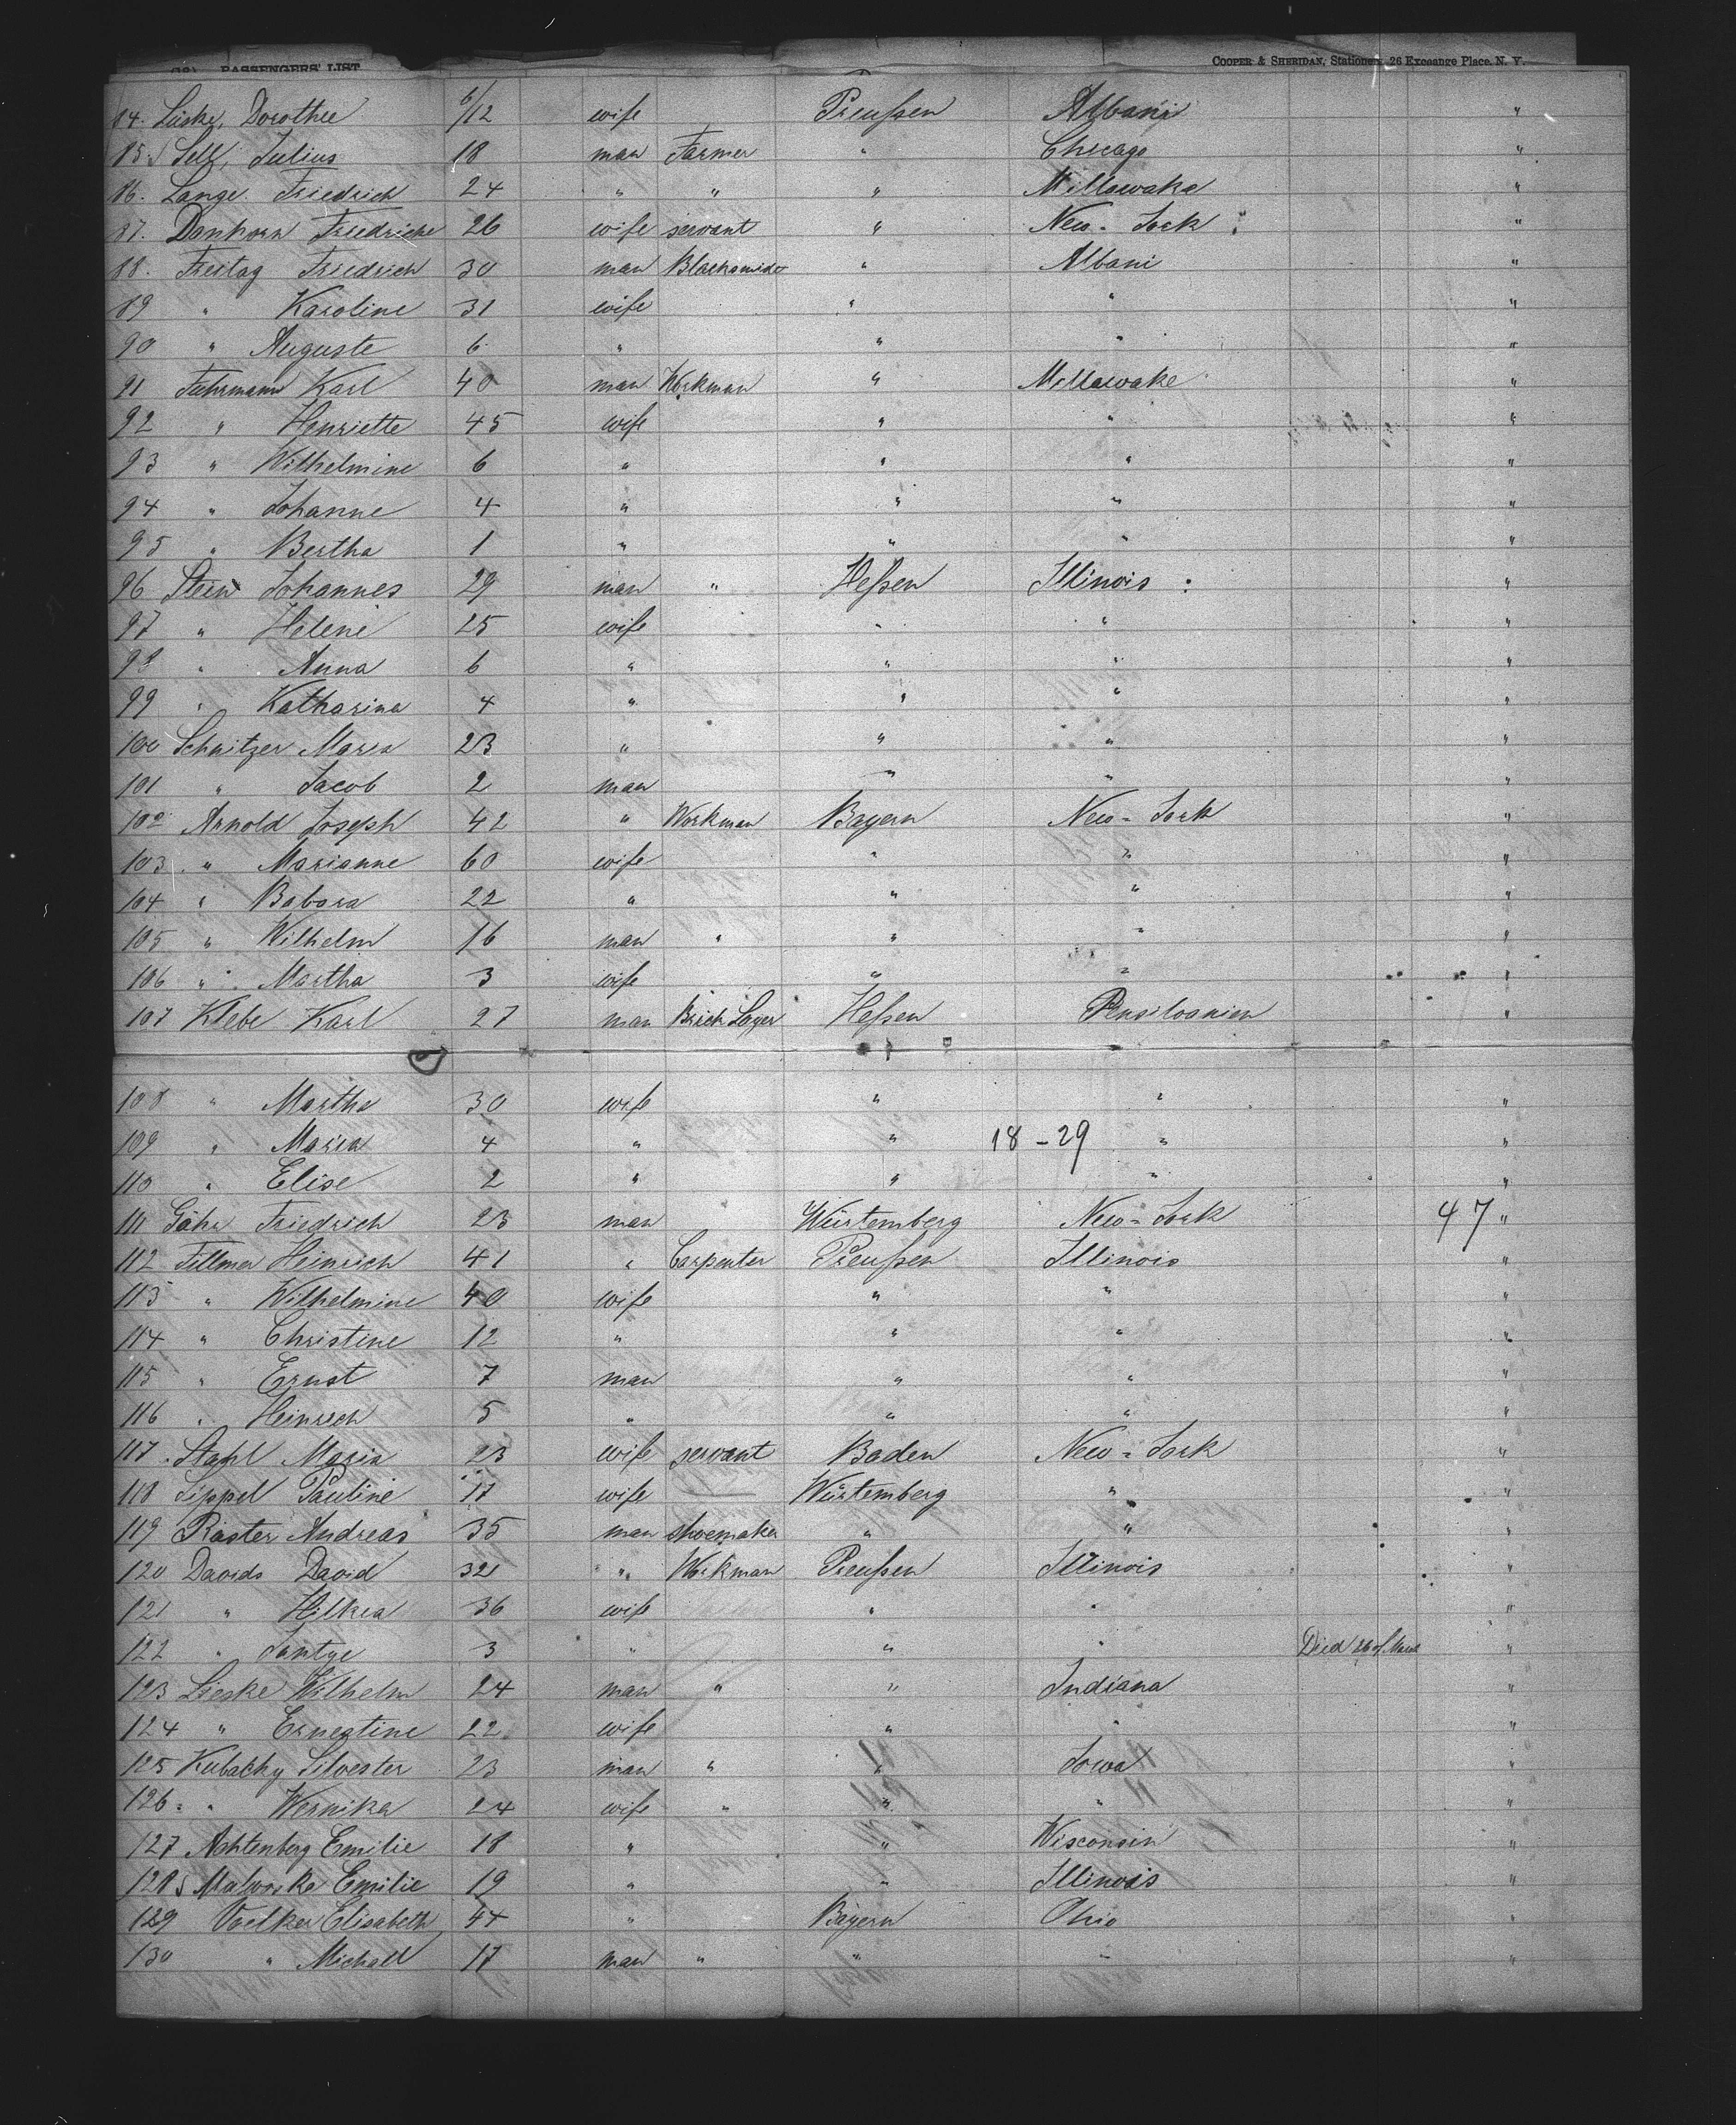 PASSENGERS' LIST. COOPER & SHERIDAN, Stationers, 26 Exchange Place, N. Y.
84. Lüske, Dorothee 6/12 wife Preußen Albani "
85. Sell, Julius 18 man Farmer " Chicago "
86. Lange Friedrich 24 " " " Millawaka "
87. Danhorn Friedricke 26 wife servant " New-York "
88. Freitag Friedrich 30 man " Albani "
89 " Karoline 31 wife " " "
90 " Auguste 6 " " " "
91 Fuhrmann Karl 40 man Workman " Millawake "
92 " Henriette 45 wife " " "
93 " Wilhelmine 6 " " " "
94 " Johanne 4 " " " "
95 " Bertha 1 " " " "
96 Stein Johannes 29 man " Heßen Illinois : "
97 " Helene 25 wife " " "
98 " Anna 6 " " " "
99 " Katharina 4 " " " "
100 Schnitzer Maria 23 " " " "
101 " Jacob 2 man " " "
102 Arnold Joseph 42 " Workman Bayern New-York "
103 " Marianne 60 wife " " "
104 " Babara 22 " " " "
105 " Wilhelm 16 man " " " "
106 " Martha 3 wife " " "
107 Klebe Karl 27 man Brick Layer Heßen Pensilvanien "
108 " Martha 30 wife " " "
109 " Maria 4 " " 18-29 " "
110 " Elise 2 " " " "
111 Gähr Friedrich 23 man Würtemberg New-York 47 "
112 Fillmer Heinrich 41 " Carpenter Preußen Illinois "
113 " Wilhelmine 40 wife " " "
114 " Christine 12 " " " "
115 " Ernst 7 man " " "
116 " Heinrich 5 " " " "
117 Stahl Maria 23 wife servant Baden New-York "
118 Sippel Pauline 17 wife Würtemberg " "
119 Raster Andreas 35 man shoemaker " " "
120 Davids David 32 " Workman Preußen Illinois "
121 " Hilkea 36 wife " " "
122 " Jantye 3 " " " Died 26 of "
123 Lieske Wilhelm 24 man " " Indiana "
124 " Ernestine 22 wife " " "
125 Kubacky Silvester 23 man " " Iowa "
126 " Wernika 24 wife " " " "
127 Achtenberg Emilie 18 " " Wisconsin "
128 Malwoske Emilie 19 " " Illinois "
129 Voelker Elisabeth 44 " Bayern Ohio "
130 " Michall 17 man " " " "